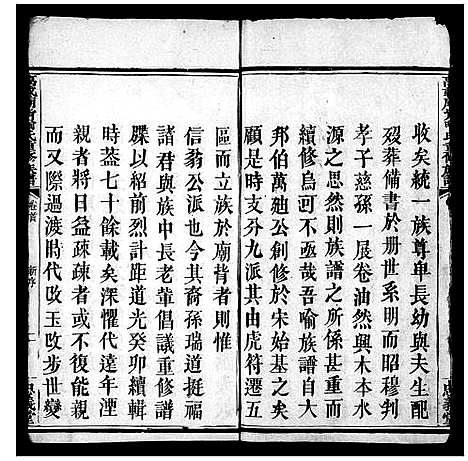 收矣統一族尊卑長幼與夫生配
歿葬備書於册世系明而昭穆判
孝子慈孫一展卷油然興木本水
源之思然則族譜之所係甚重而
續修烏可不勤哉吾喻族譜自大
邦伯萬廸公創修於宋始基之矣
顧是時支分九派其由虎符遷五
區而立族於廟背者則惟
信翁公派也今其裔孫瑞道挺福
諸君與族中長老輩倡議重修譜
牒以紹前烈計距道光癸卯續輯
時葢七十餘載矣深懼代遠年湮
親者將日益疎疎者或不復能親
而又際過渡時代改玉改步世變
卷首
新序